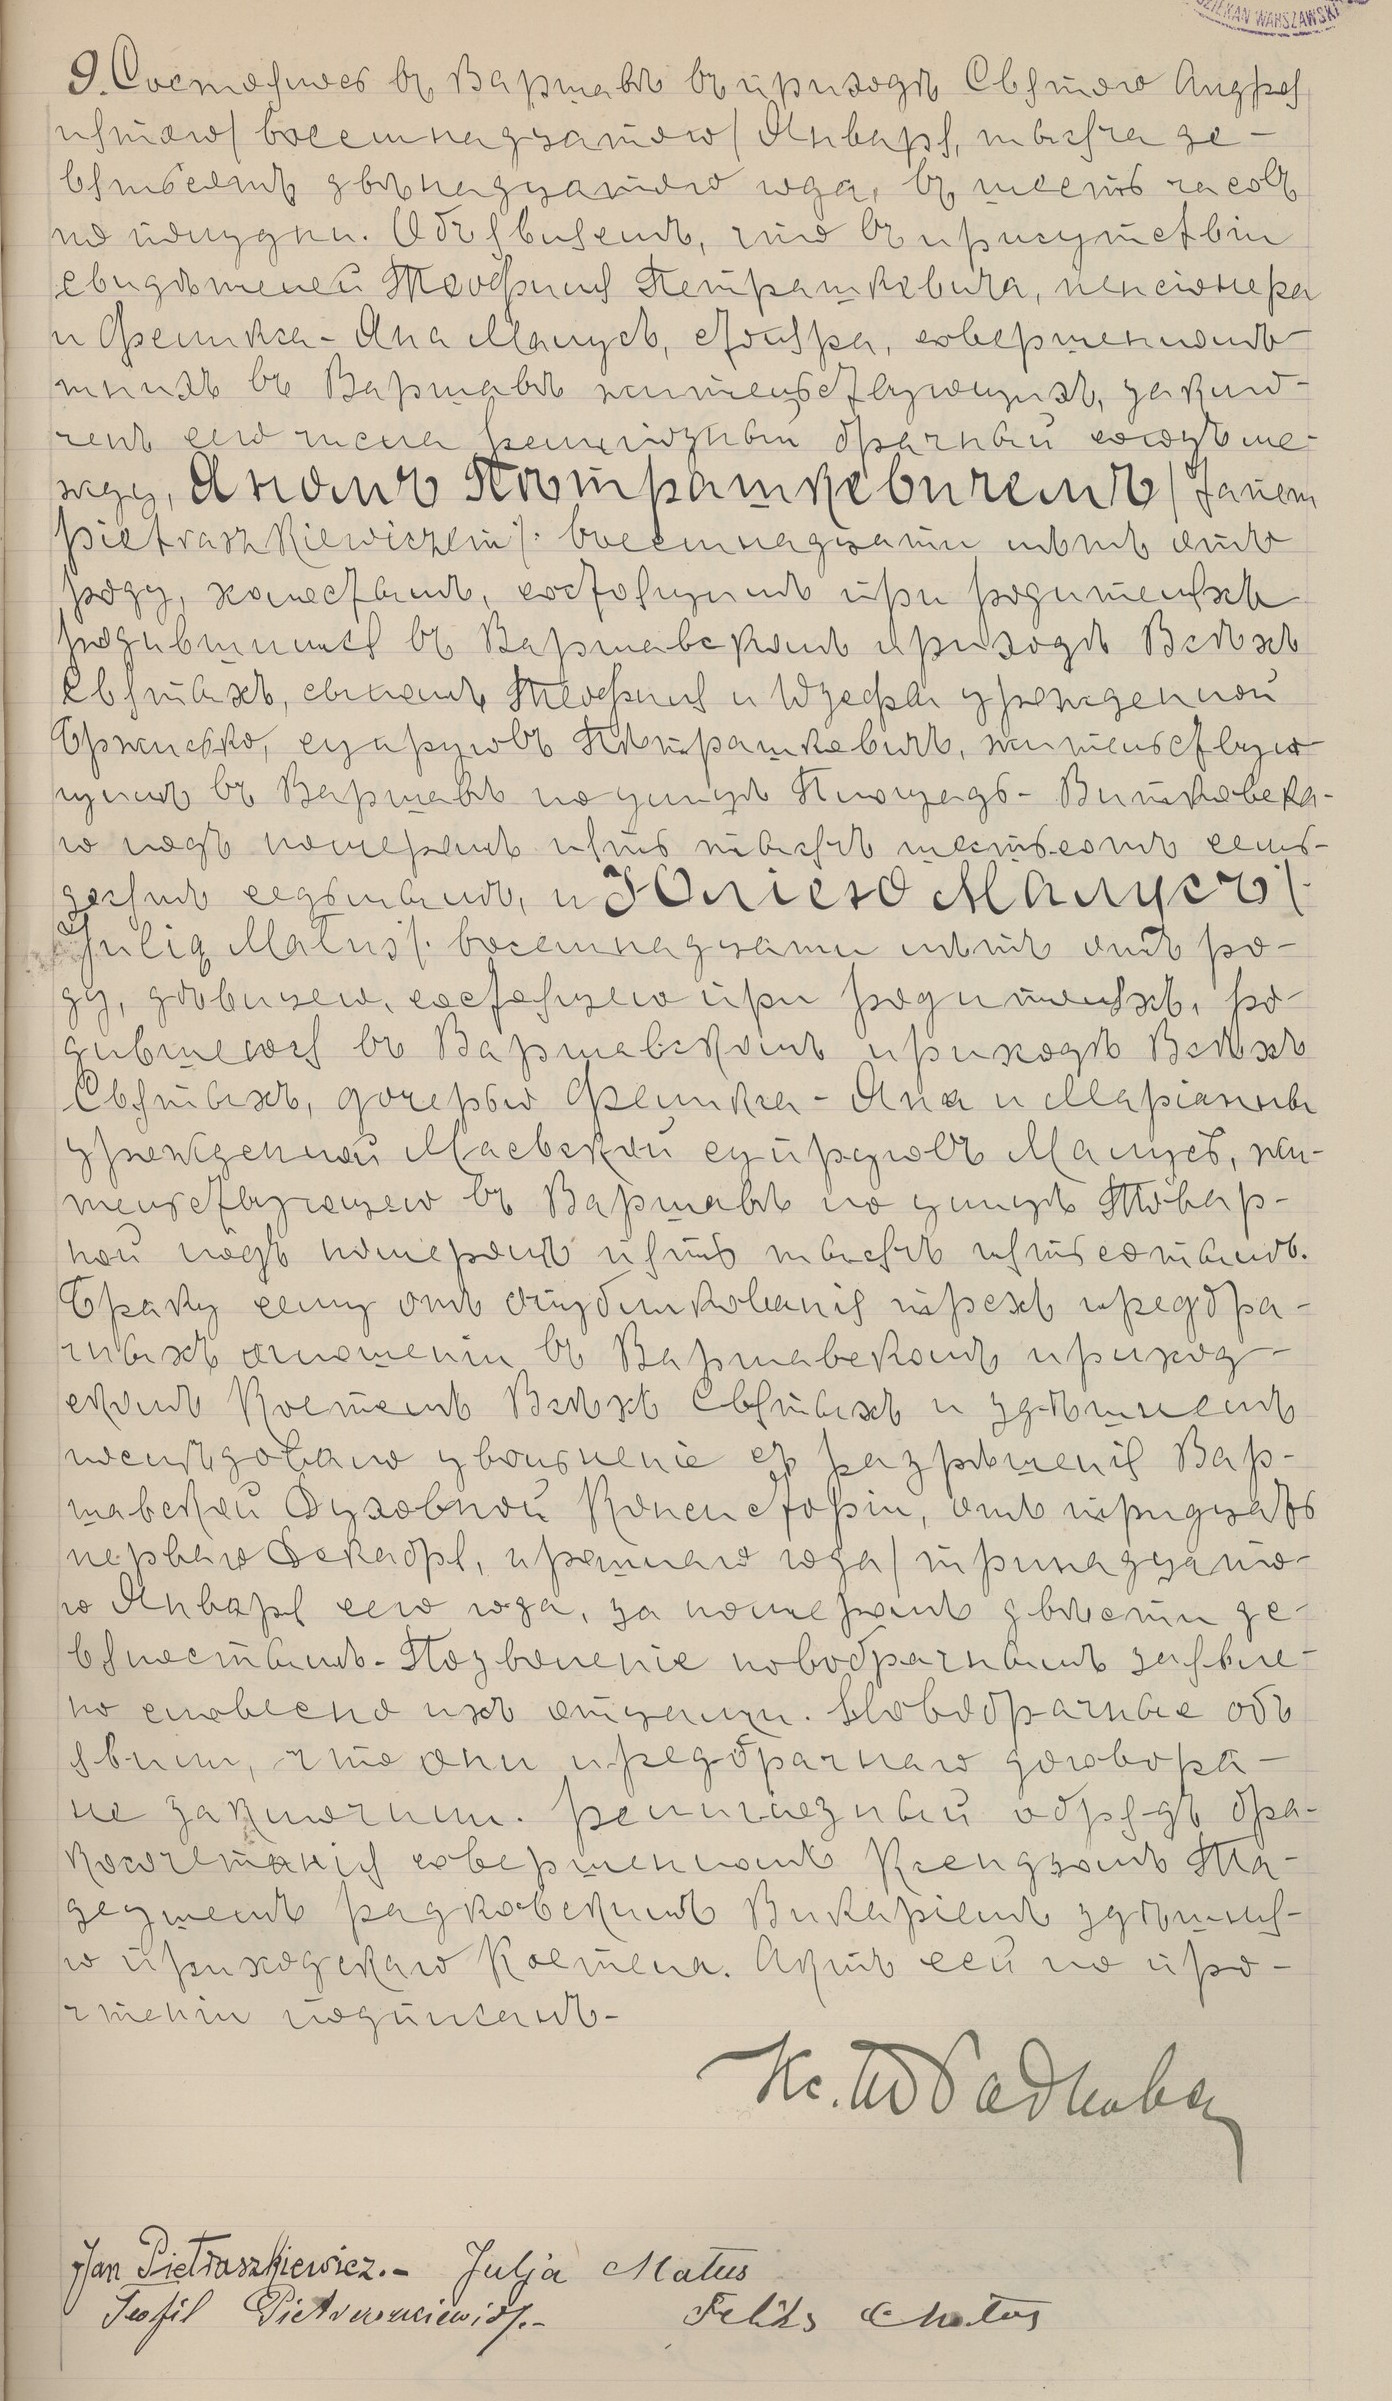 DZIEKAN WARSZAWSKI
9. Состоялось въ Варшавѣ въ приходѣ Святого Андрея
пятого/ восемнадцатого/ Января, тысяча де-
вятьсотъ двѣнадцатого года, въ шесть часовъ
по полудни. Объявляемъ, что въ присутствіи
свидѣтелей Теофиля Петрашкевича, пенсіонера
и Феликса-Яна Матусъ, столяра, совершеннолѣт-
тнихъ въ Варшавѣ жительствующихъ, заклю-
ченъ сего числа религіозный брачный союзъ ме-
жду, Яномъ Пѣтрашкевичемъ/ Janem
Pietraszkiewiczem/. восемнадцати лѣтъ отъ
роду, холостымъ, состоящимъ при родителяхъ
родившимся въ Варшавскомъ приходѣ Всѣхъ
Святыхъ, сыномъ Теофиля и Юзефы урожденной
супруговъ Пѣтрашкевичъ, жительствую-
щимъ въ Варшавѣ по улицѣ Площадь- Витковска-
го подъ номеромъ пять тысячъ шестьсотъ семь-
десятъ седьмымъ, и Юліею Матусъ/.
Julią Matus/. восемнадцати лѣтъ отъ ро-
ду, дѣвицею, состоящею при родителяхъ, ро-
дившеюся въ Варшавскомъ приходѣ Всѣхъ
Святыхъ, дочерью Феликса-Яна и Маріанны
урожденной Маевской супруговъ Матусъ, жи-
тельствующею въ Варшавѣ по улицѣ Товар-
ной подъ номеромъ пять тысячъ пятьсотымъ.
Браку сему отъ опубликованія трехъ предбра-
чныхъ оглашеніи въ Варшавскомъ приход-
скомъ Костелѣ Всѣхъ Святыхъ и здѣшнемъ
послѣдовало увольненіе съ разрѣшенія Вар-
шавской Духовной Консисторіи, отъ тридцать
перваго Декабря, прошлаго года/ тринадцато-
го Января сего года, за номеромъ двѣсти де-
вяностымъ. Позволеніе новобрачнымъ заявле-
но словесно ихъ отцами. Новобрачные объ
явили, что они предбрачнаго договора
не заключили. Религіозный обрядъ бра-
косочетанія совершенномъ Ксендзомъ Та-
деушемъ Радковскимъ Викаріемъ здѣшня-
го приходскаго Костела. Актъ сей по про-
чтеніи подписанъ-
Jan Pietraszkiewicz.- Julja Matus
Teofil Pietraszkiewicz.- Feliks Matus